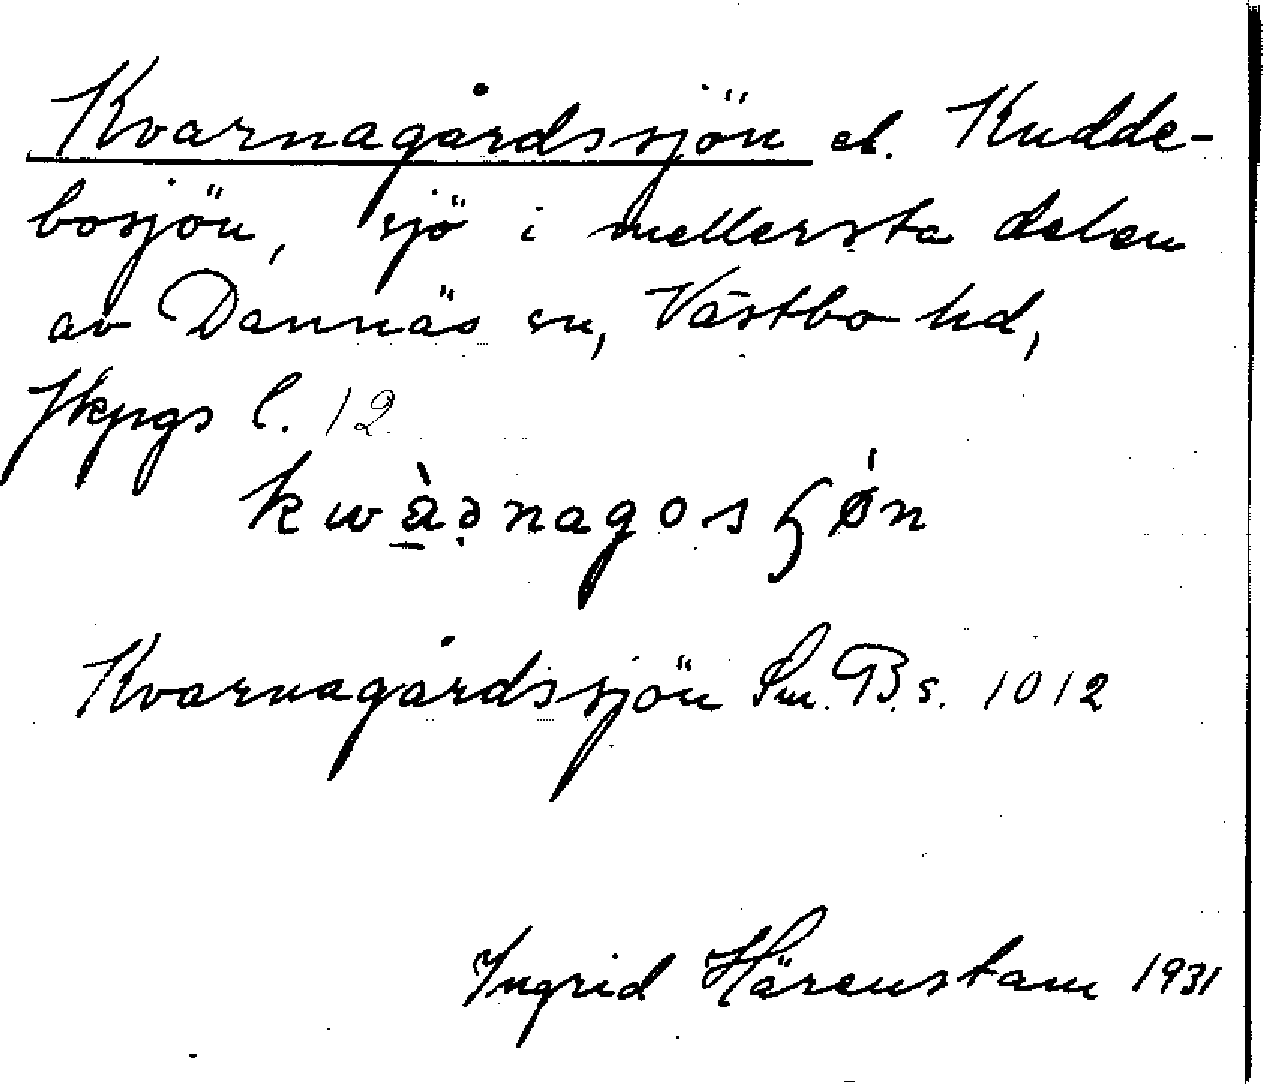 Kvarnagårdssjön el. Kudde-
bosjön, sjö i mellersta delen
av Dannäs sn, Västbo hd,
Jkpgs l. 12
kwàənagosʃǿn
Kvarnagårdssjön Sm. B. s. 1012
Ingrid Härenstam 1931